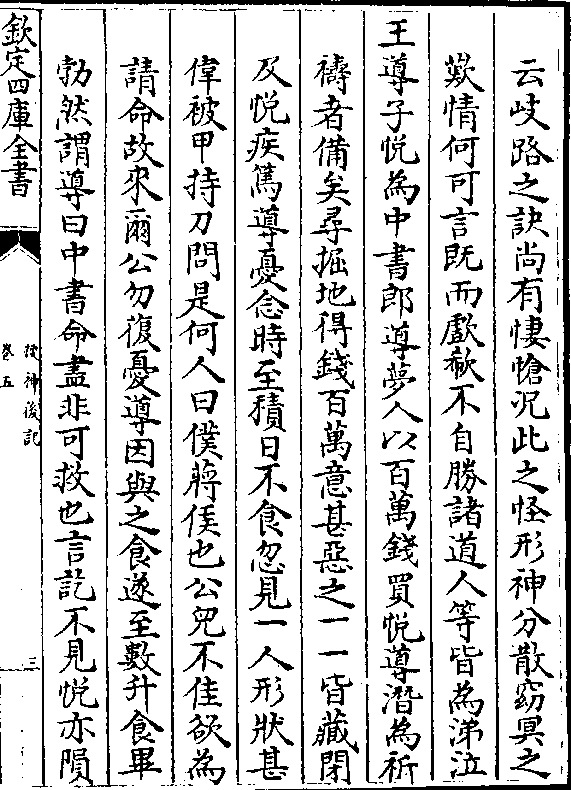 云岐路之訣尚有悽愴況此之怪形神分散窈冥之
歎情何可言既而歔欷不自勝諸道人等皆為涕泣
王導子悅為中書郎導夢人以百萬錢買悅導潛為祈
禱者備矣尋掘地得錢百萬意甚惡之一一皆藏閉
及悅疾篤導憂念時至積日不食忽見一人形狀甚
偉被甲持刀問是何人曰僕蔣侯也公兒不佳欲為
請命故來爾公勿復憂導因與之食遂至數升食畢
勃然謂導曰中書命盡非可救也言訖不見悅亦隕
欽定四庫全書
搜神後記
卷五
三